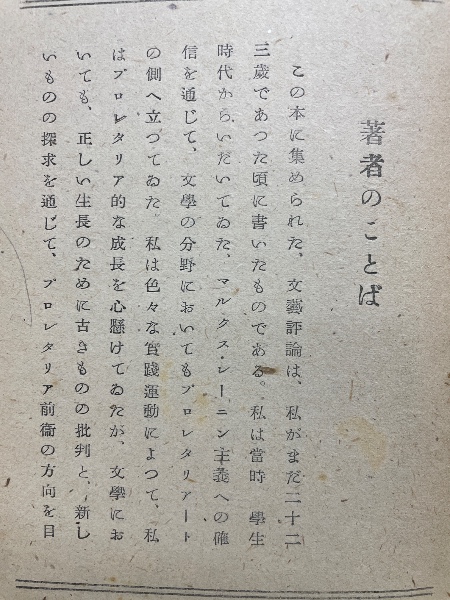 著者のことば
この本に集められた、文藝評論は、私がまだ二十二
三歳であつた頃に書いたものである。私は當時　學生
時代からいだいてゐた、マルクス・レーニン主義への確
信を通じて、文學の分野においてもプロレタリアート
の側へ立つてゐた　私は色々な實踐運動によつて、私
はプロレタリア的な成長を心懸けてゐたが、文學にお
いても、正しい生長のために古きものの批判と、新し
いものの探求を通じて、プロレタリア前衞の方向を目